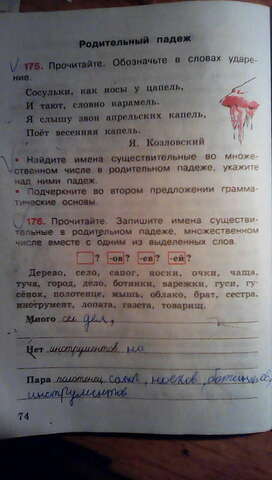 Родительный падеж
175. Прочитайте. Обозначьте в словах ударе-
ние.
Сосульки, как носы у цапель,
И тают, словно карамель.
Я слышу звон апрельских капель,
Поёт весенняя капель.
Я. Козловский
• Найдите имена существительные во множе-
ственном числе в родительном падеже, укажите
над ними падеж.
• Подчеркните во втором предложении грамма-
тические основы.
176. Прочитайте. Запишите имена существи-
тельные в родительном падеже, множественном
числе вместе с одним из выделенных слов.
? -ов? -ев? -ей?
Дерево, село, сапог, носки, очки, чаща,
туча, город, дело, ботинки, варежки, гуси, гу-
сёнок, полотенце, мышь, облако, брат, сестра,
инструмент, лопата, газета, товарищ.
Много дел,
Нет инструментов, но
Пара полотенец, сапог, носков,
инструментов
74